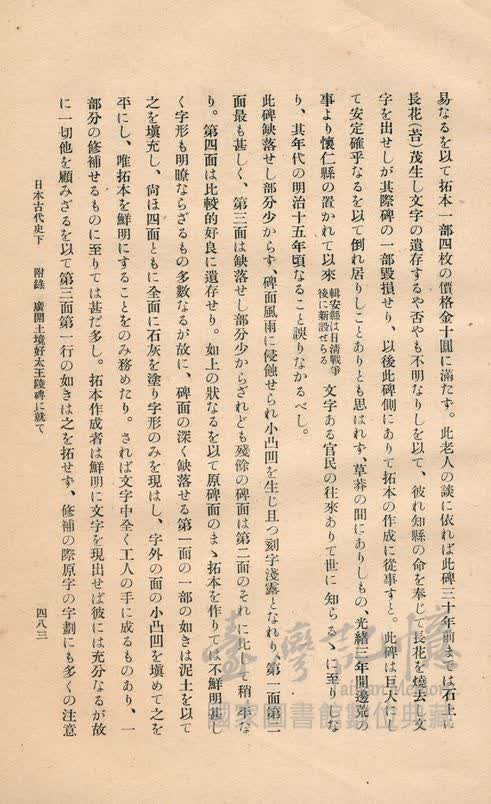 易なるを以て拓本一部四枚の價格金十圓に滿たず。此老人の談に依れば此碑三十年前までは石上に
長花(苔)茂生し文字の遺存するや否やも不明なりしを以て、彼れ知縣の命を奉じて長花を燒去し文
字を出せしが其際碑の一部毀損せり、以後此碑側にありて拓本の作成に從事すと。此碑は巨大にし
て安定確乎なるを以て倒れ居りしことありとも思はれず、草莽の間にありしもの、光緖三年開邊荒の
事より懷仁縣の置かれて以來輯安縣は日淸戰爭後に新設せらる文字ある官民の往來ありて世に知らるゝに至りしな
り、其年代の明治十五年頃なること誤りなかるべし。
此碑缺落せし部分少からず、碑面風雨に侵蝕せられ小凸凹を生じ且つ刻字淺露となれり、第一面第二
面最も甚しく、第三面は缺落せし部分少からざれども殘餘の碑面は第二面のそれに比して稍平な
り。第四面は比較的好良に遺存せり。如上の狀なるを以て原碑面のまゝ拓本を作りては不鮮明甚し
く字形も明瞭ならざるもの多數なるが故に、碑面の深く缺落せる第一面の一部の如きは泥土を以て
之を塡充し、尙ほ四面ともに全面に石灰を塗り字形のみを現はし、字外の面の小凸凹を塡めて之を
平にし、唯拓本を鮮明にすることをのみ務めたり。されば文字中全く工人の手に成るものあり、一
部分の修補せるものに至りては甚だ多し。拓本作成者は鮮明に文字を現出せば彼には充分なるが故
に一切他を顧みざるを以て第三面第一行の如きは之を拓せず、修補の際原字の字劃にも多くの注意
日本古代史下 附錄 廣開土境好太王陵碑に就て 四八三
臺灣記憶
國家圖書館數位典藏